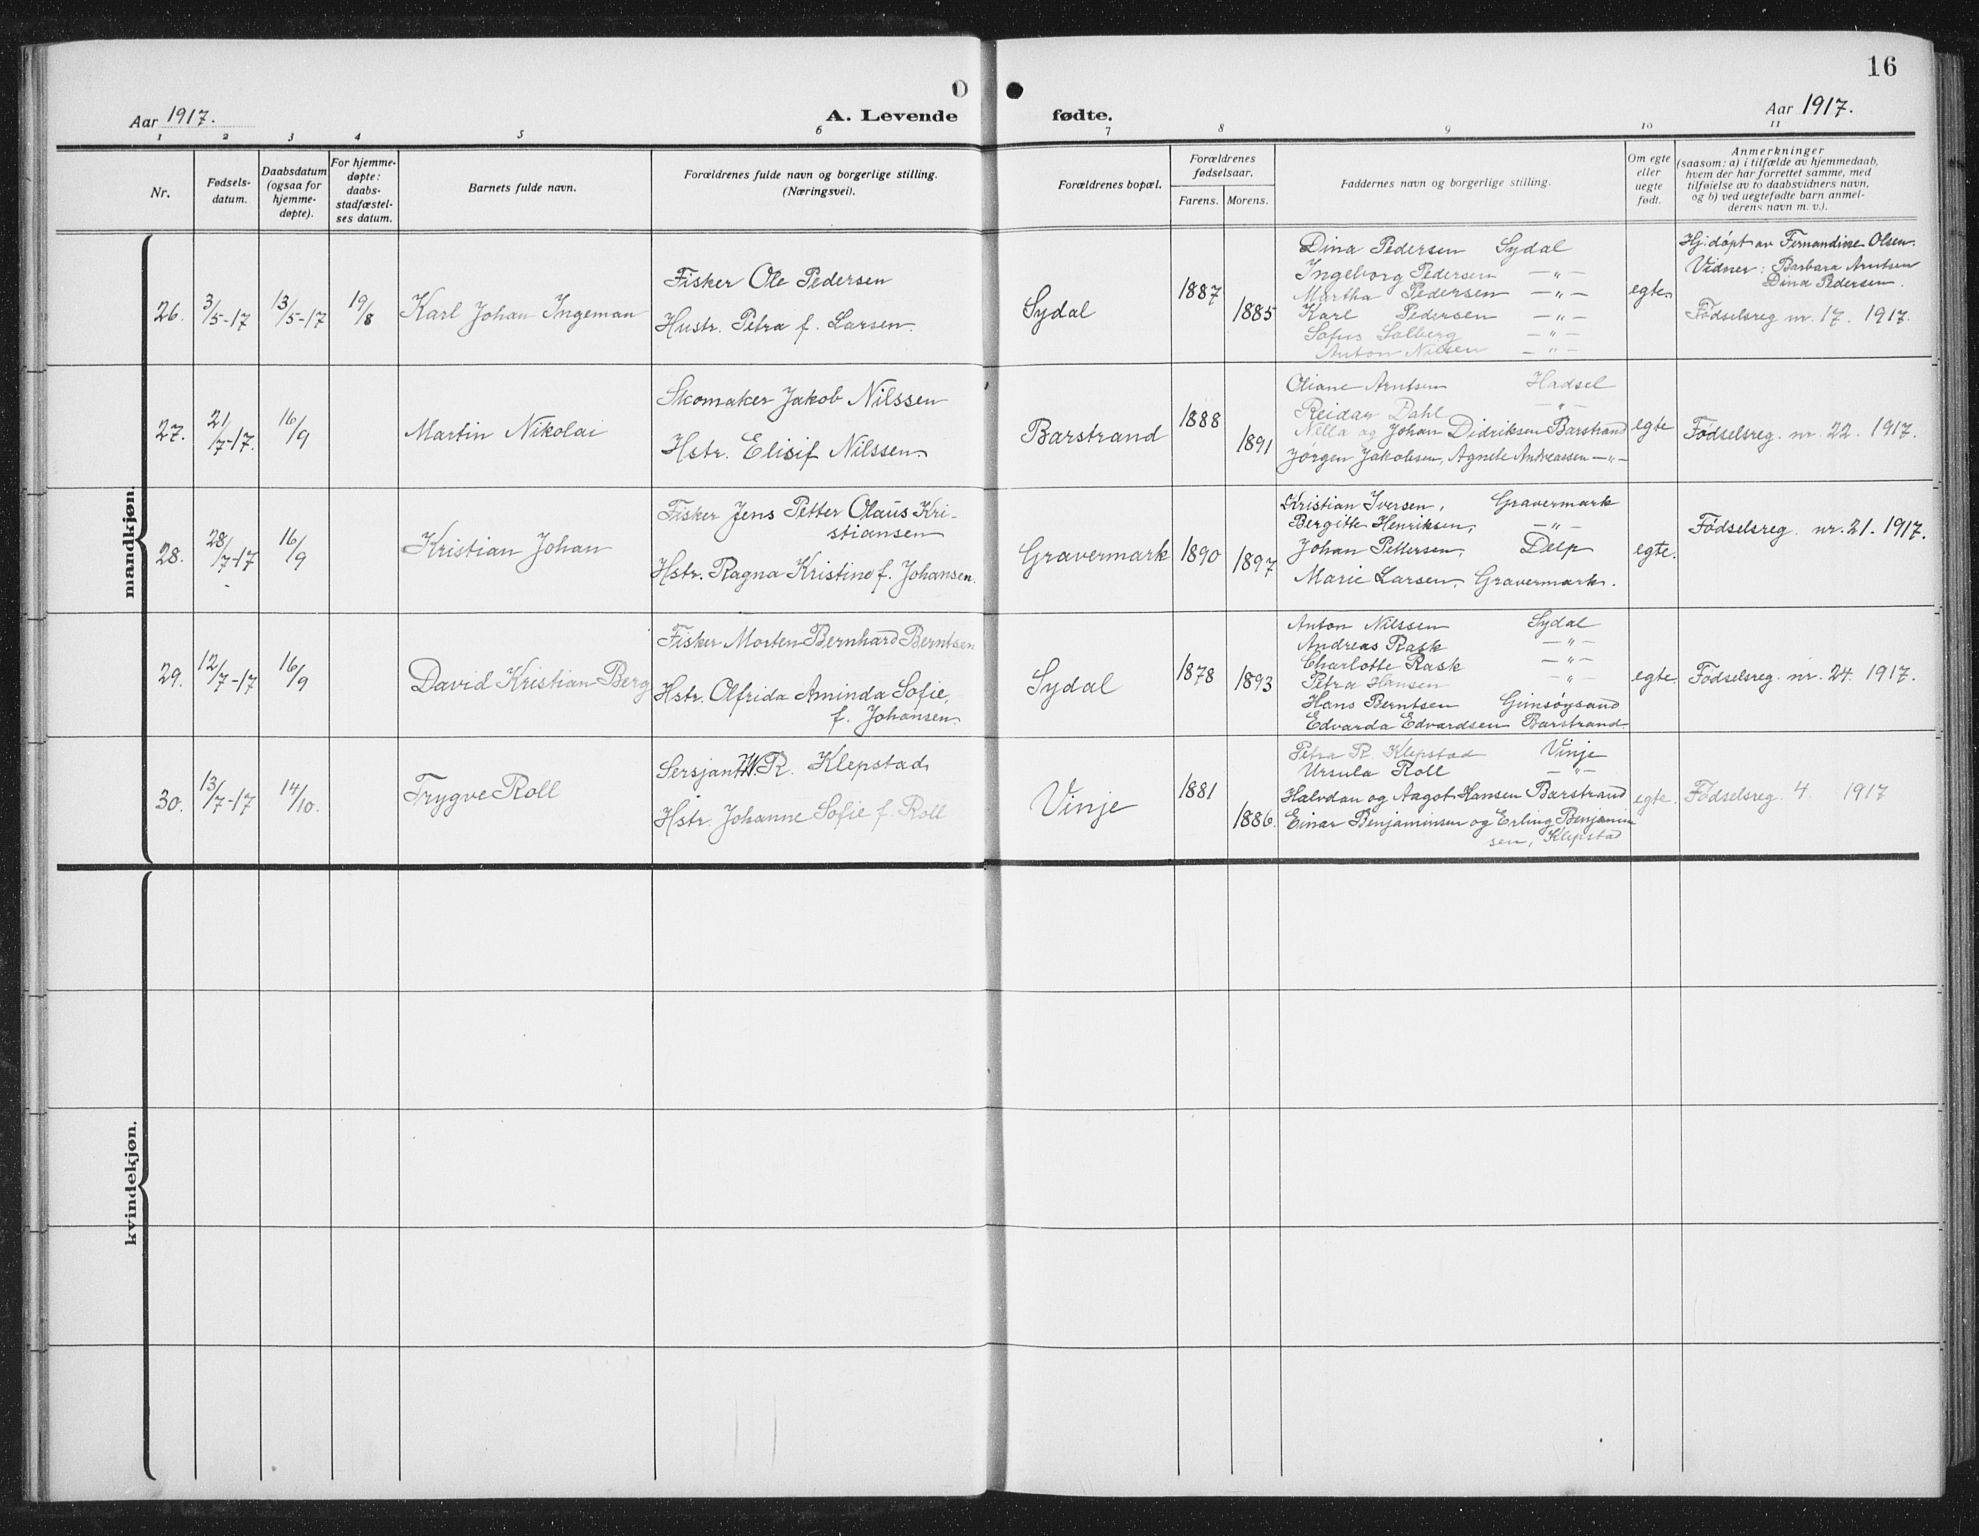 16
Aar 1917.
A. Levende
fødte.
Aar 1917.
1 2 3 4 5 6 7 8 9 10 11
Nr.
Fødsels-
datum.
Daabsdatum
(ogsaa for
hjemme-
døpte).
For hjemme-
døpte:
daabs-
stadfæstel-
ses datum.
Barnets fulde navn.
Forældrenes fulde navn og borgerlige stilling.
(Næringsvei).
Forældrenes bopæl.
Forældrenes
fødselsaar.
Farens. Morens.
Faddernes navn og borgerlige stilling.
Om egte
eller
uegte
født.
Anmerkninger
(saasom: a) i tilfælde av hjemmedaab,
hvem der har forrettet samme, med
tilføielse av to daabsvidners navn,
og b) ved uegtefødte barn anmel-
derens navn m. v.).
mandkjøn.
26.
3/5-17
13/5-17
19/8
Karl Johan Ingeman
Fisker Ole Pedersen
Hustr. Petra f. Larsen.
Sydal
1887
1885
Dina Pedersen Sydal
Ingeborg Pedersen —"—
Martha Pedersen —"—
Karl Pedersen —"—
Sofus Solberg —"—
Anton Nilsen —"—
egte
Hj. døpt av Fernandine Olsen.
Vidner: Barbara Arntsen
Dina Pedersen.
Fødselsreg nr. 17. 1917.
27.
21/7-17.
16/9
Martin Nikolai
Skomaker Jakob Nilssen
Hstr. Elisif Nilssen
Barstrand
1888
1891
Oliane Arntsen Hadsel
Reidar Dahl —"—
Nella og Johan Didriksen Barstrand
Jørgen Jakobsen, Agnete Andreassen —"—
egte
Fødselsreg. nr. 22. 1917.
28.
28/7-17
16/9
Kristian Johan
Fisker Jens Petter Olaus Kri-
stiansen
Hstr. Ragna Kristine f. Johansen.
Gravermark
1890
1897
Kristian Iversen, Gravermark
Bergitte Henriksen, —"—
Johan Pettersen, Delp
Marie Larsen, Gravermark.
egte.
Fødselsreg. nr. 21. 1917.
29.
12/7-17
16/9
David Kristian Berg
Fisker Morten Bernhard Berntsen
Hstr. Olfrida Aminda Sofie,
f. Johansen.
Sydal
1878
1893
Anton Nilssen Sydal
Andreas Rask —"—
Charlotte Rask —"—
Petra Hansen —"—
Hans Berntsen Gimsøysand
Edvarda Edvardsen Barstrand
egte
Fødselsreg. nr. 24. 1917.
30.
13/7-17
14/10.
Trygve Roll
Sersjant R. Klepstad
Hstr. Johanne Sofie f. Roll
Vinje
1881
1886.
Petra R. Klepstad Vinje
Ursula Roll —"—
Halvdan og Aagot Hansen Barstrand
Einar Benjaminsen og Erling Benjamin
sen, Klepstad
egte.
Fødselsreg. 4 1917
kvindekjøn.